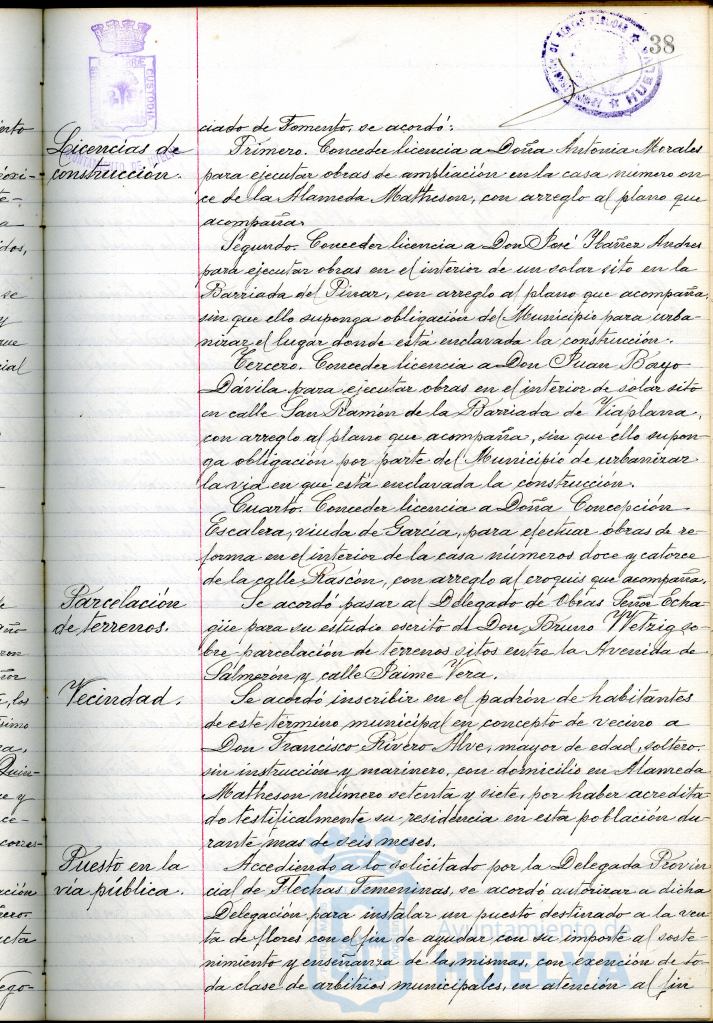 38
ciado de Fomento, se acordó:
Licencias de
construcción.
Primero. Conceder licencia a Doña Antonia Morales
para ejecutar obras de ampliación en la casa numero on
ce de la Alameda Matheson, con arreglo al plano que
acompaña.
Segundo. Conceder licencia a Don José Ibañez Andres
para ejecutar obras en el interior de un solar sito en la
Barriada del Pinar, con arreglo al plano que acompaña,
sin que ello suponga obligación del Municipio para urba-
nizar el lugar donde está enclavada la construcción.
Tercero. Conceder licencia a Don Juan Bayo
Dávila para ejecutar obras en el interior de solar sito
en calle San Ramón de la Barriada de Viaplana,
con arreglo al plano que acompaña, sin que ello supon
ga obligación por parte del Municipio de urbanizar
la via en que está enclavada la construcción.
Cuarto. Conceder licencia a Doña Concepción
Escalera, viuda de García, para efectuar obras de re-
forma en el interior de la casa números doce y catorce
de la calle Rascón, con arreglo al croquis que acompaña.
Parcelación
de terrenos.
Se acordó pasar al Delegado de Obras Señor Echa-
güe para su estudio escrito de Don Bruno Wetzig so-
bre parcelación de terrenos sitos entre la Avenida de
Salmerón y calle Jaime Vera.
Vecindad.
Se acordó inscribir en el padrón de habitantes
de este termino municipal en concepto de vecino a
Don Francisco Rivero Alve, mayor de edad, soltero,
sin instrucción y marinero, con domicilio en Alameda
Matheson número setenta y siete, por haber acredita
do testificalmente su residencia en esta población du
rante mas de seis meses.
Puesto en la
via pública.
Accediendo a lo solicitado por la Delegada Provin
cial de Flechas Femeninas, se acordó autorizar a dicha
Delegación para instalar un puesto destinado a la ven
ta de flores con el fin de ayudar con su importe al soste-
nimiento y enseñanza de las mismas, con exención de to-
da clase de arbitrios municipales, en atención al fin
Ayuntamiento de
HUELVA